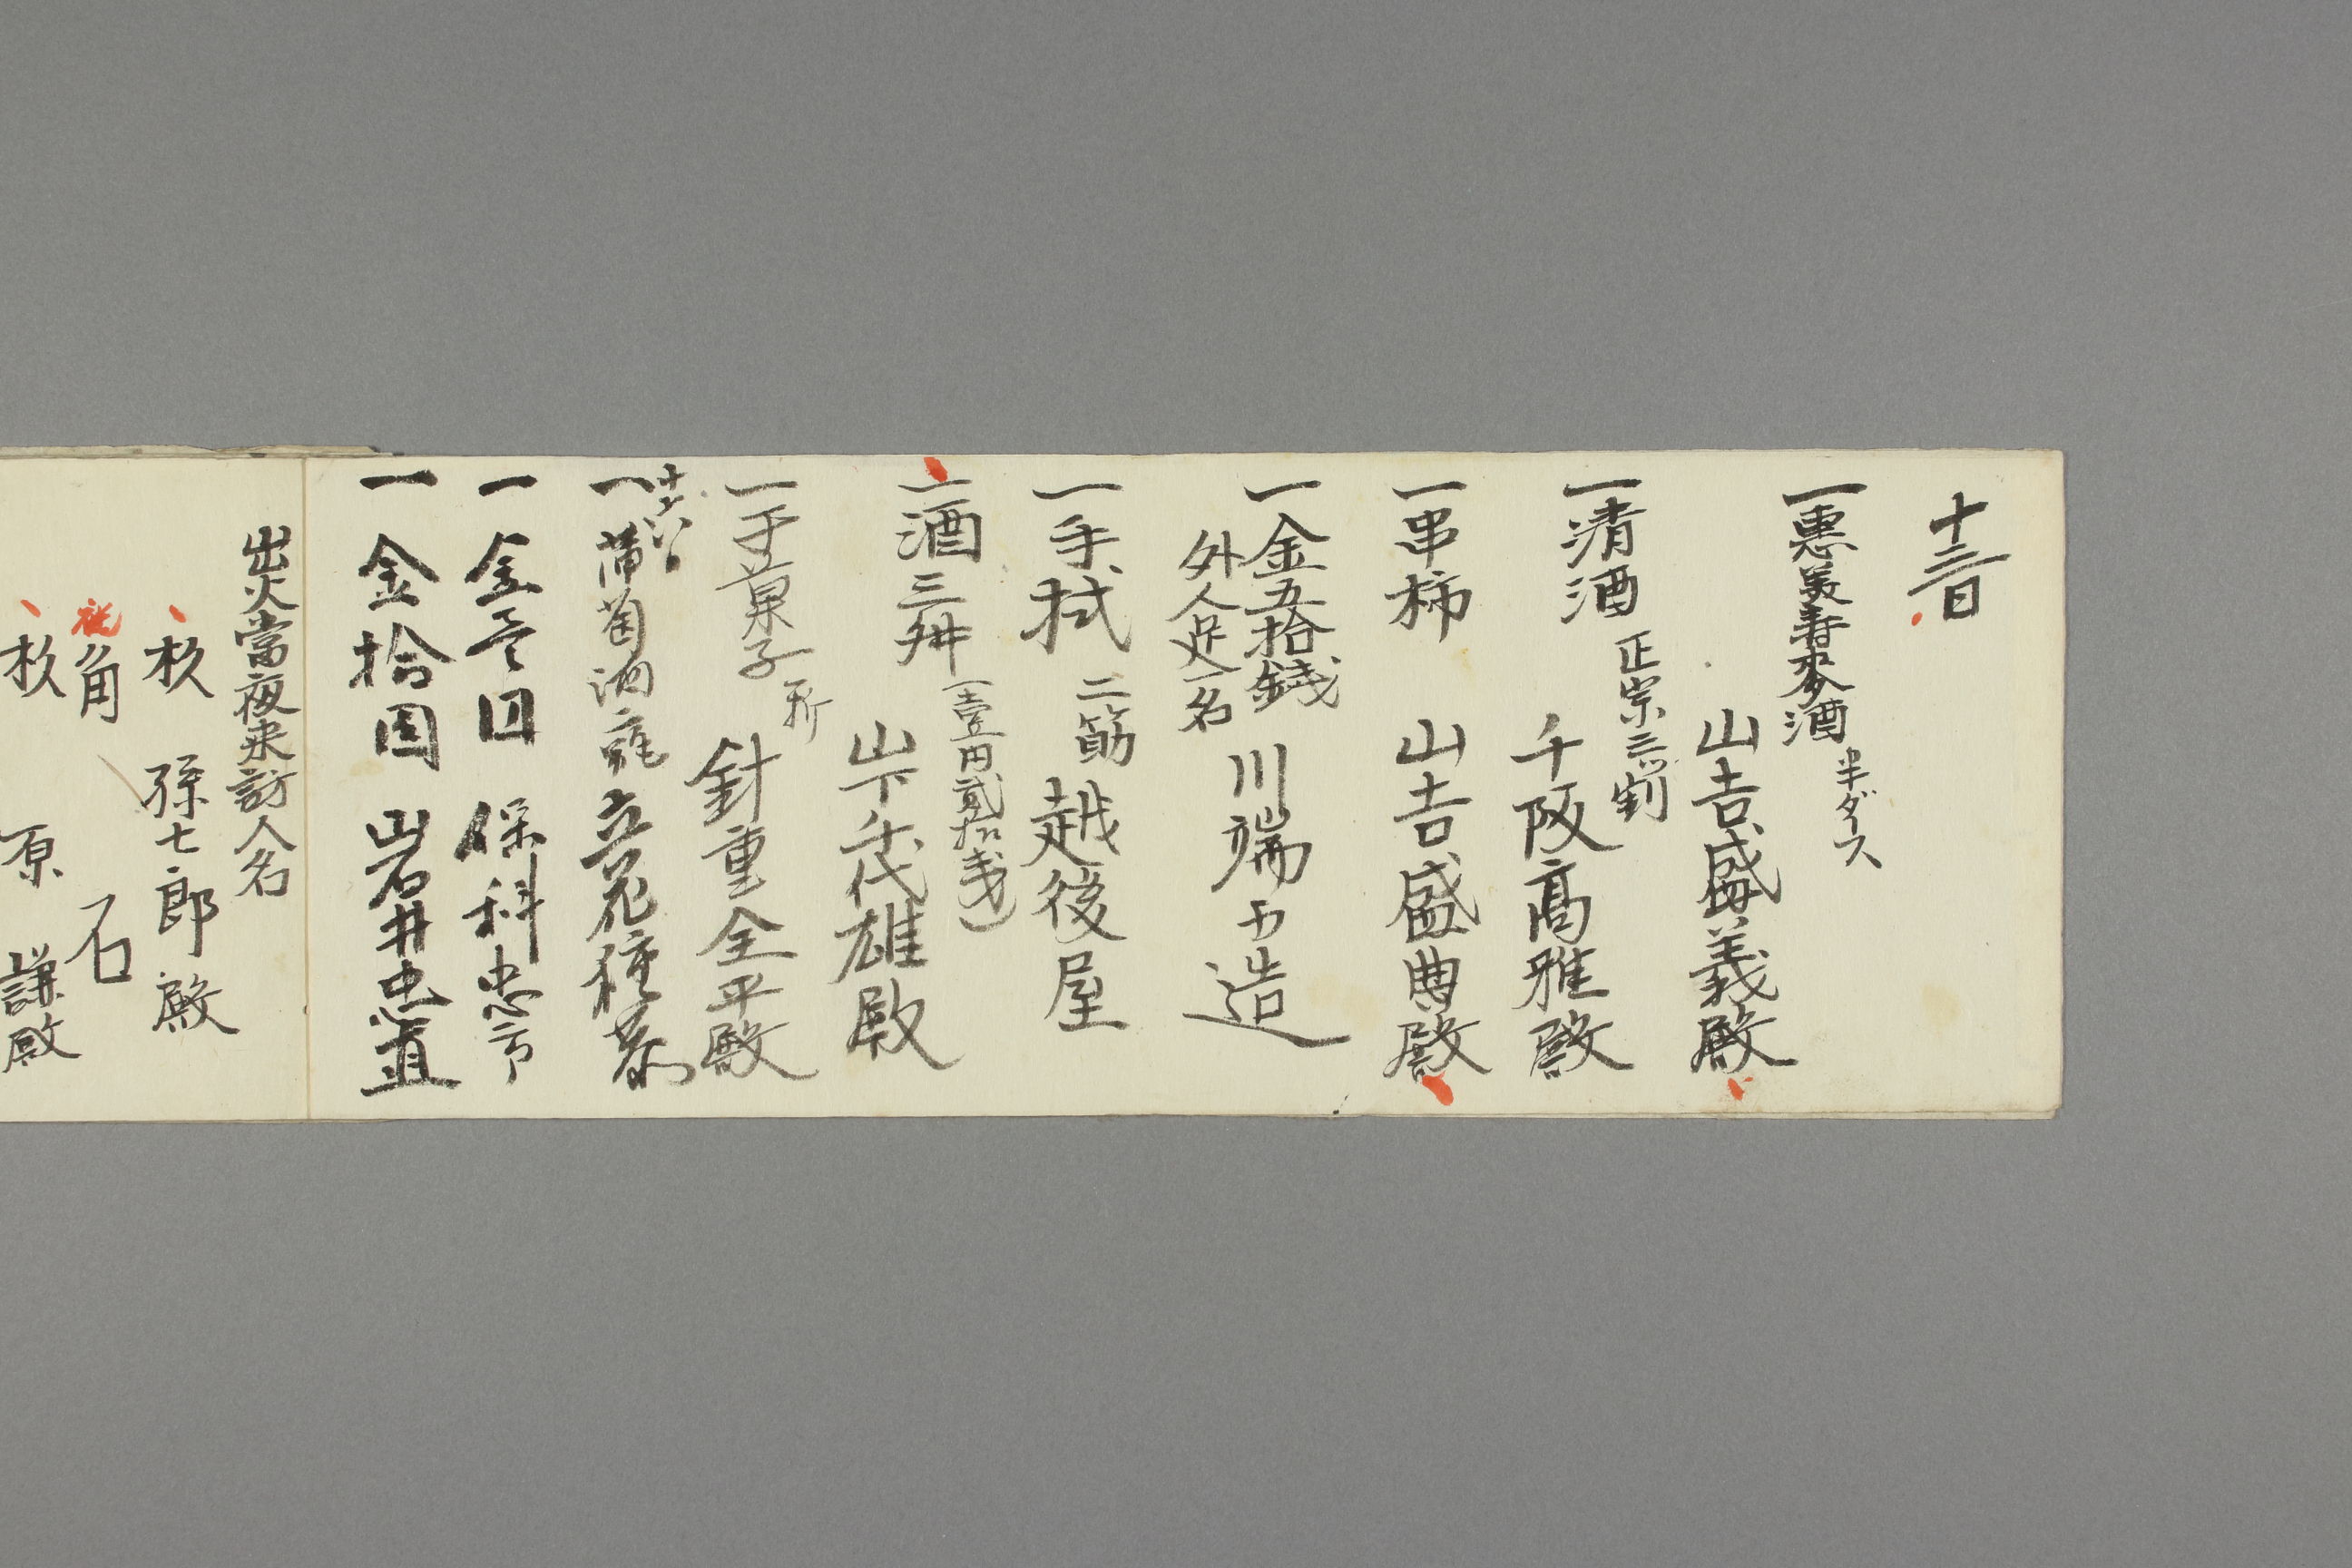 十三日
一惠美寿麥酒 半ダース
山吉盛義殿
一清酒 正宗三ツ割
千阪高雅殿
一串柿
山吉盛典殿
一金五拾錢
外人足一名
川端 造
一手拭 二筋
越後屋
一酒三舛 (壹円貳拾戋)
山下千代雄殿
一干菓子 一折
針重全平殿
一葡萄酒 立花種恭
一金壱円 保科忠
一金拾圓 岩井忠直
出火當夜来訪人名
杦 孫七郎殿
角 石
杦 原 謙殿